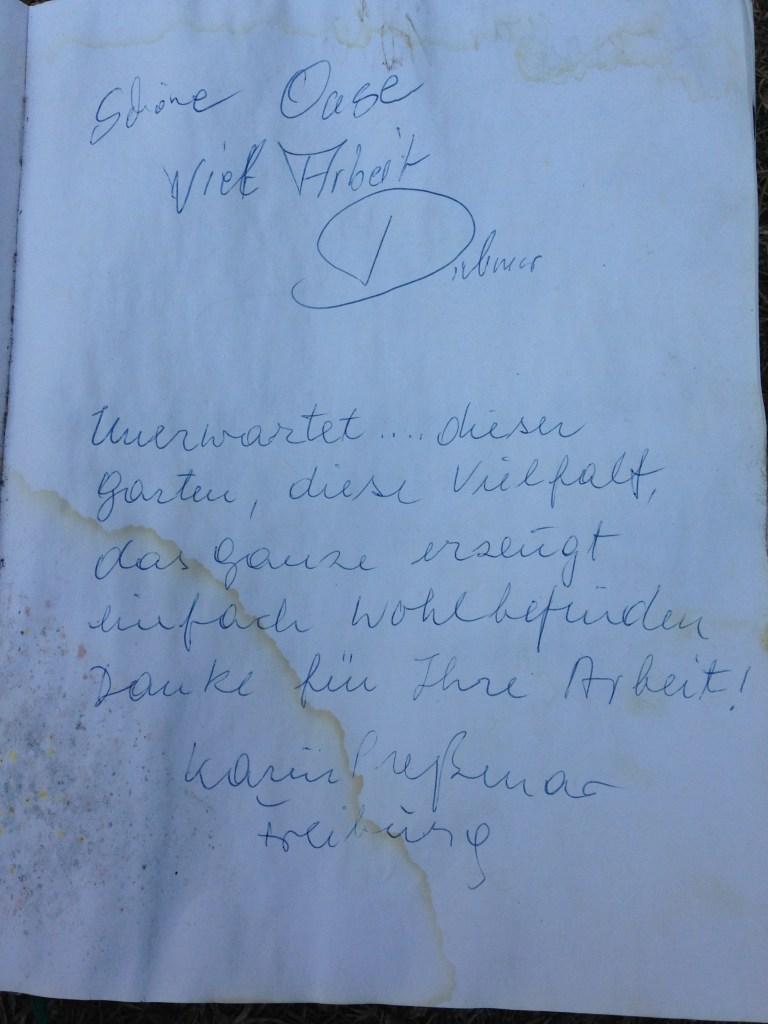 Schöne Oase
Viel Arbeit
Unerwartet.... dieser
Garten, diese Vielfalt,
das ganze erzeugt
einfach Wohlbefinden
Danke für Ihre Arbeit!
Karin
Freiburg